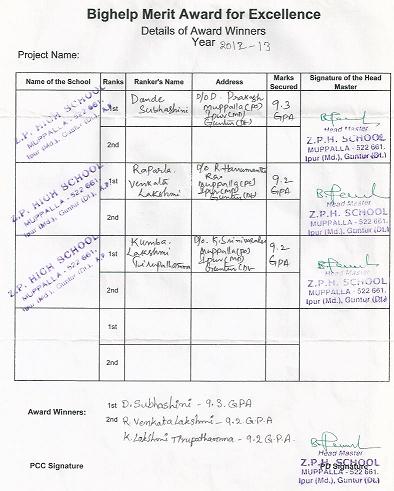 Bighelp Merit Award for Excellence
Details of Award Winners
Year 2012-13
Project Name:
Name of the School Ranks Ranker's Name Address Marks Secured Signature of the Head Master
Z.P. HIGH SCHOOL
MUPPALLA - 522 661.
Ipur (Md.), Guntur (Dt.), A.P.
1st
Dande
Subhashini
D/o D. Prakash
Muppalla(po)
Ipur(MD)
Guntur(Dt)
9.3
GPA
Head Master
Z.P.H. SCHOOL
MUPPALLA - 522 661.
Ipur (Md.), Guntur (Dt.)
2nd
Z.P. HIGH SCHOOL
MUPPALLA - 522 661.
Ipur (Md.), Guntur (Dt.), A.P.
1st
Raparla
Venkata
Lakshmi
D/o R. Hanumantha
Rao
Muppalla(po)
Ipur(MD)
Guntur(Dt)
9.2
GPA
Head Master
Z.P.H. SCHOOL
MUPPALLA - 522 661.
Ipur (Md.), Guntur (Dt.)
2nd
Z.P. HIGH SCHOOL
MUPPALLA - 522 661.
Ipur (Md.), Guntur (Dt.), A.P.
1st
Kumba.
Lakshmi
D/o. K. Srinivasarao
Muppalla(po)
Ipur(MD)
Guntur(Dt)
9.2
GPA
Head Master
Z.P.H. SCHOOL
MUPPALLA - 522 661.
Ipur (Md.), Guntur (Dt.)
2nd
1st
2nd
Award Winners:
1st D. Subhashini - 9.3. G.P.A
2nd R Venkata Lakshmi - 9.2 G.P.A
K. Lakshmi Thirupathamma - 9.2 G.P.A.
Head Master
Z.P.H. SCHOOL
PCC Signature PD Signature
MUPPALLA - 522 661.
Ipur (Md.), Guntur (Dt.)